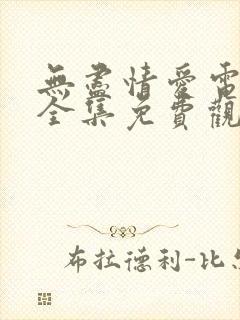 無盡情愛電
全集免費觀
布拉德利-比怎